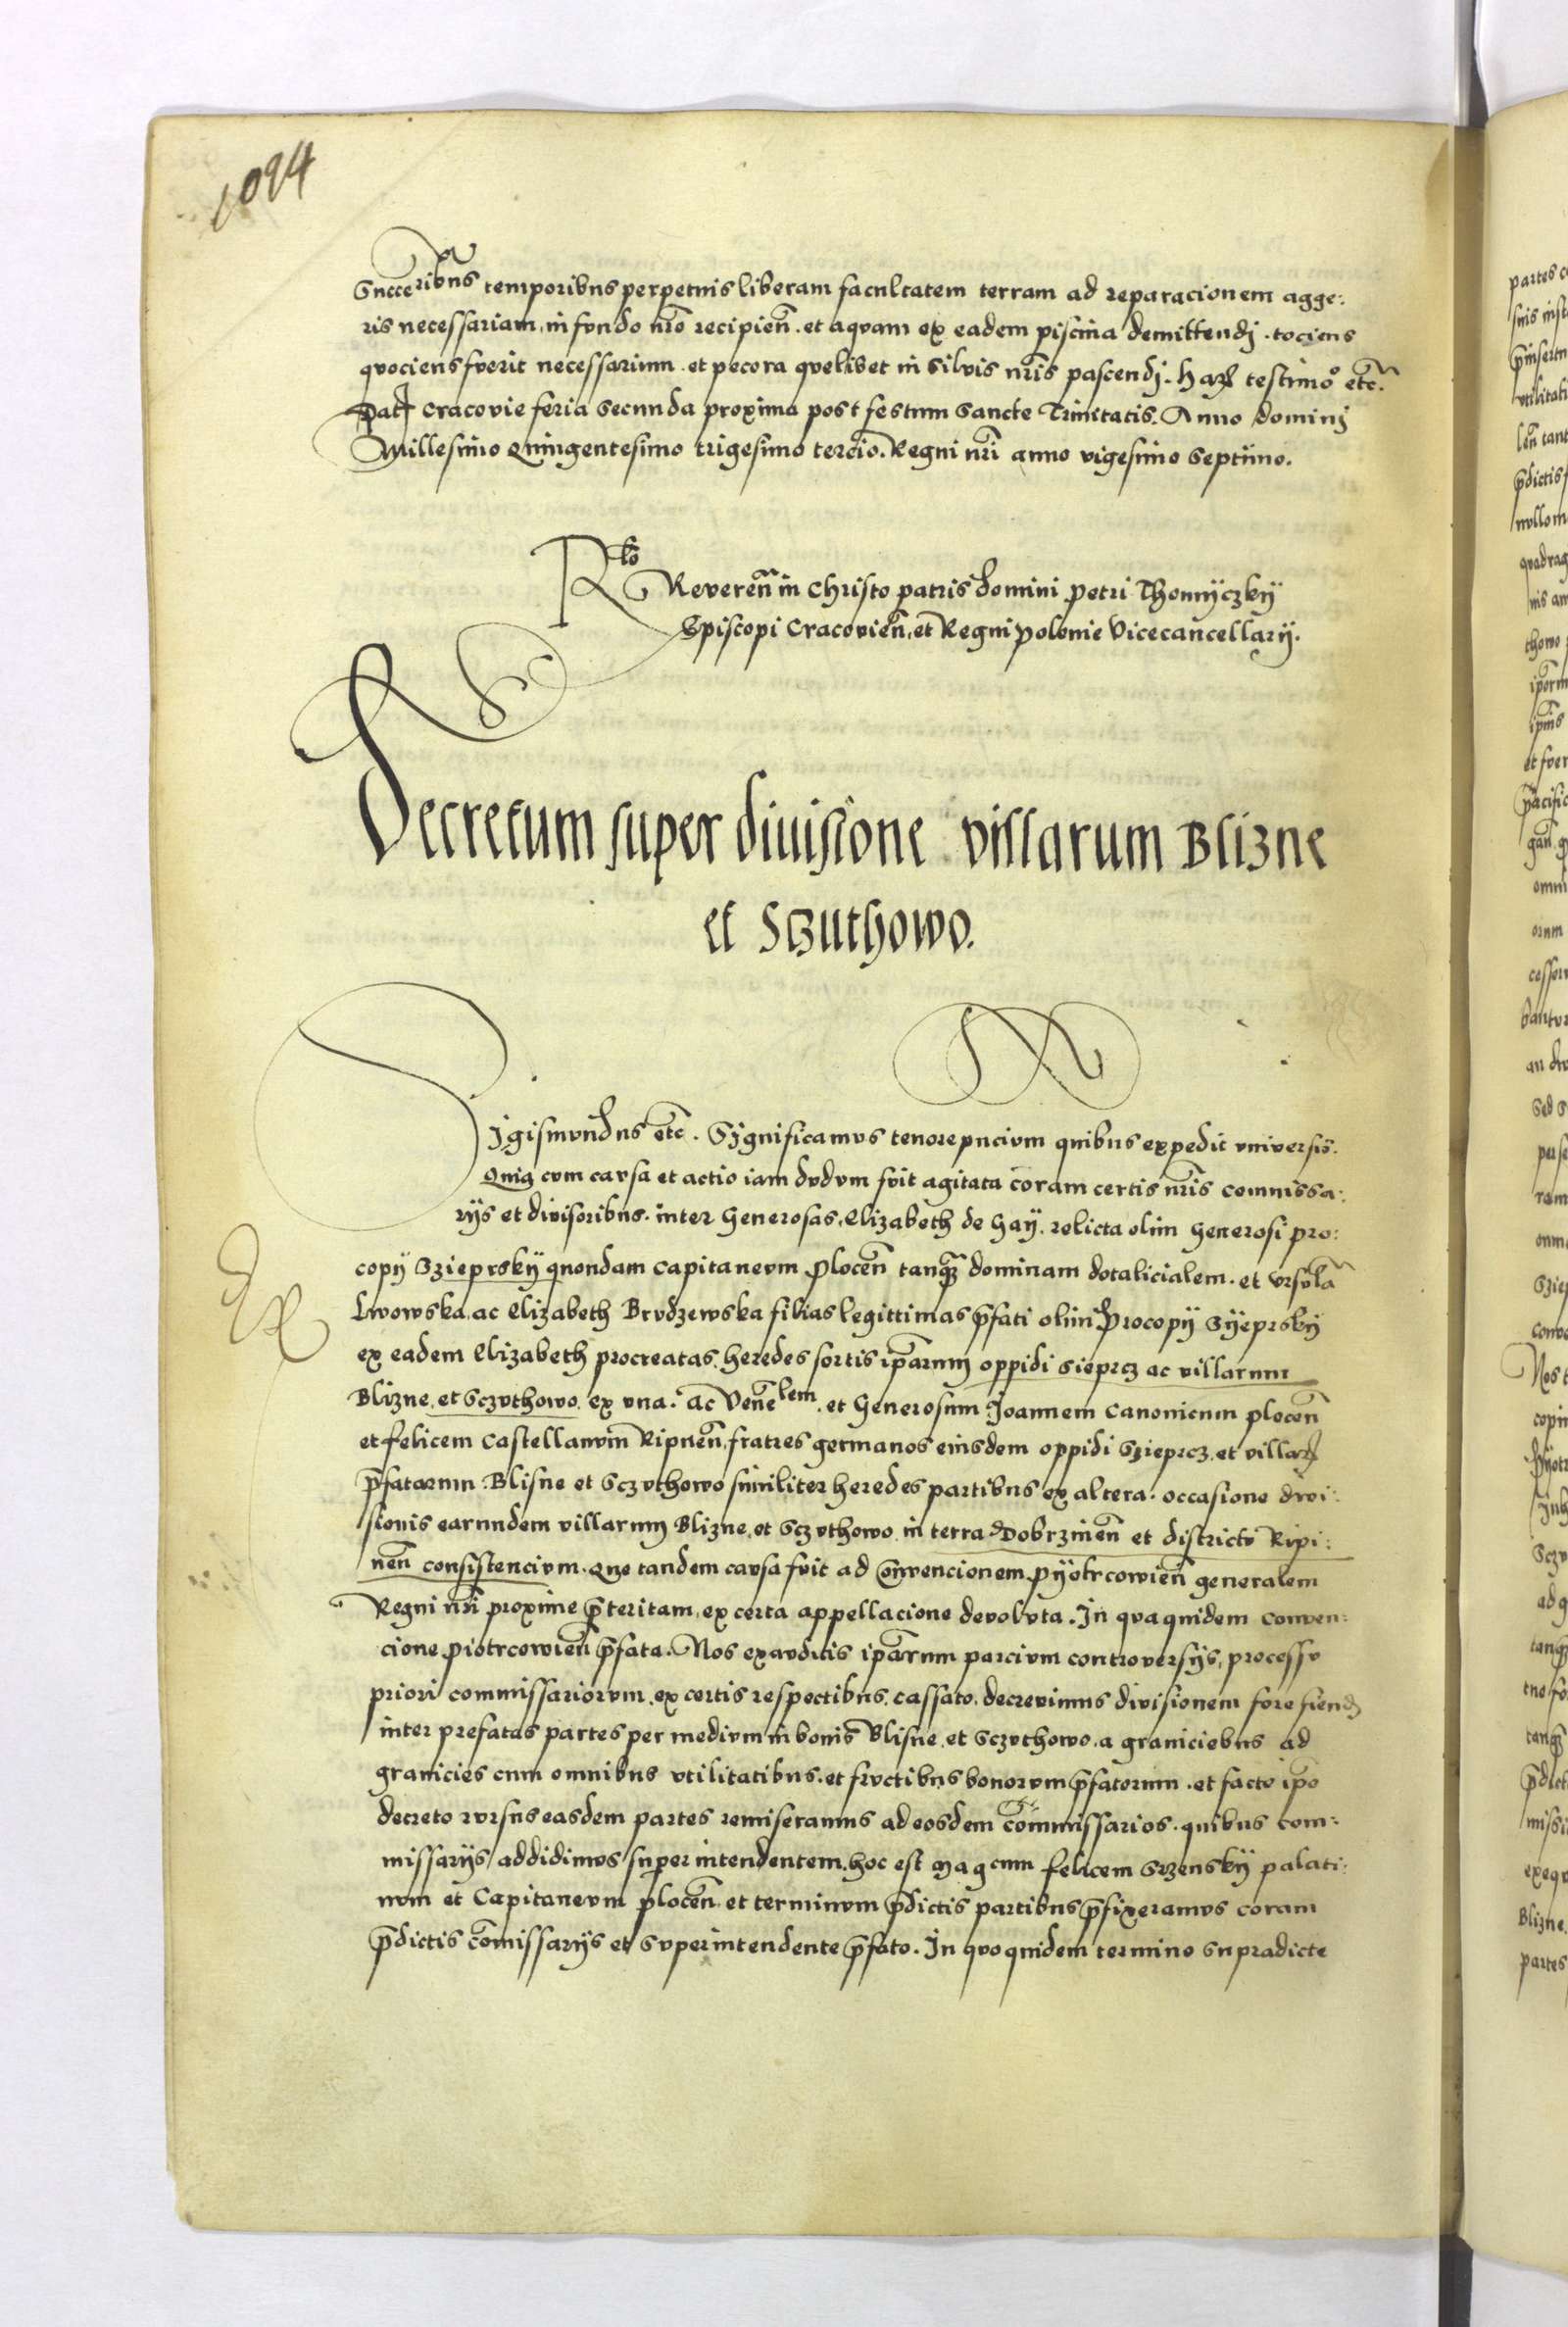 1094
Succeribus temporibus perpetuis liberam facultatem terram ad reparacionem agge:
ris necessariam, in fundo nro recipien. et aquam ex eadem piscina demittendj. tociens
quociens fuerit necessarium. et pecora quelibet in silvis nris pascendj. Harz testimo etc.
Dat Cracovie feria secunda proxima post festum Sancte Trinitatis. Anno dominj
Millesimo Quingentesimo trigesimo tercio. Regni nri anno vigesimo Septimo.
Rlo Reveren in Christo patris domini Petri Thomyczkÿ
Episcopi Cracovien, et Regni Polonie Vicecancellarÿ.
Decretum super divisione villarum Blizne
et Sczuthowo.
Sigismundus etc. Significamus tenore pncium quibus expedit universis.
Quia cum causa et actio iam dudum fuit agitata coram certis nris commissa:
rÿs et divisoribus. inter Generosas, Elizabeth de Gaÿ. relicta olim Generosi Pro:
copÿ Szieprskÿ quondam Capitaneum Plocen tanq dominam dotalicialem. et Ursula
Lwowska, ac Elizabeth Brudzewska filias legittimas pfati olim Procopÿ Sÿeprskÿ
ex eadem Elizabeth procreatas, heredes sortis iparum oppidi Sieprcz ac villarum
Blizne, et Sczuthowo, ex una. ac Venelem, et Generosum Joannem Canonicum plocen
et felicem Castellanum Ripnen, fratres germanos eiusdem oppidi Szieprcz, et villarz
pfatarum Blisne et Sczuthowo similiter heredes partibus ex altera. occasione divi:
sionis earundem villarum Blizne, et Sczuthowo in terra Dobrzinen et districtu Ripi:
nen consistencium. Que tandem causa fuit ad Convencionem Pÿotrcowien generalem
Regni nri proxime pteritam, ex certa appellacione devoluta. In qua quidem conven:
cione Piotrcowien pfata. Nos exauditis iparum parcium controversÿs, processu
priori commissariorum, ex certis respectibus, cassato, decrevimus divisionem fore fiend
inter prefatas partes per medium in bonis Blisne, et Sczuthowo, a graniciebus ad
granicies cum omnibus utilitatibus, et fructibus bonorum pfatorum. et facto ipo
decreto rursus easdem partes remiseramus ad eosdem commissarios. quibus com:
missarÿs addidimus superintendentem, hoc est Magcum felicem Srzenskÿ palati:
num et Capitaneum plocen, et terminum pdictis partibus pfixeramus coram
pdictis comissarÿs et superintendente pfato. In quo quidem termino supradicte